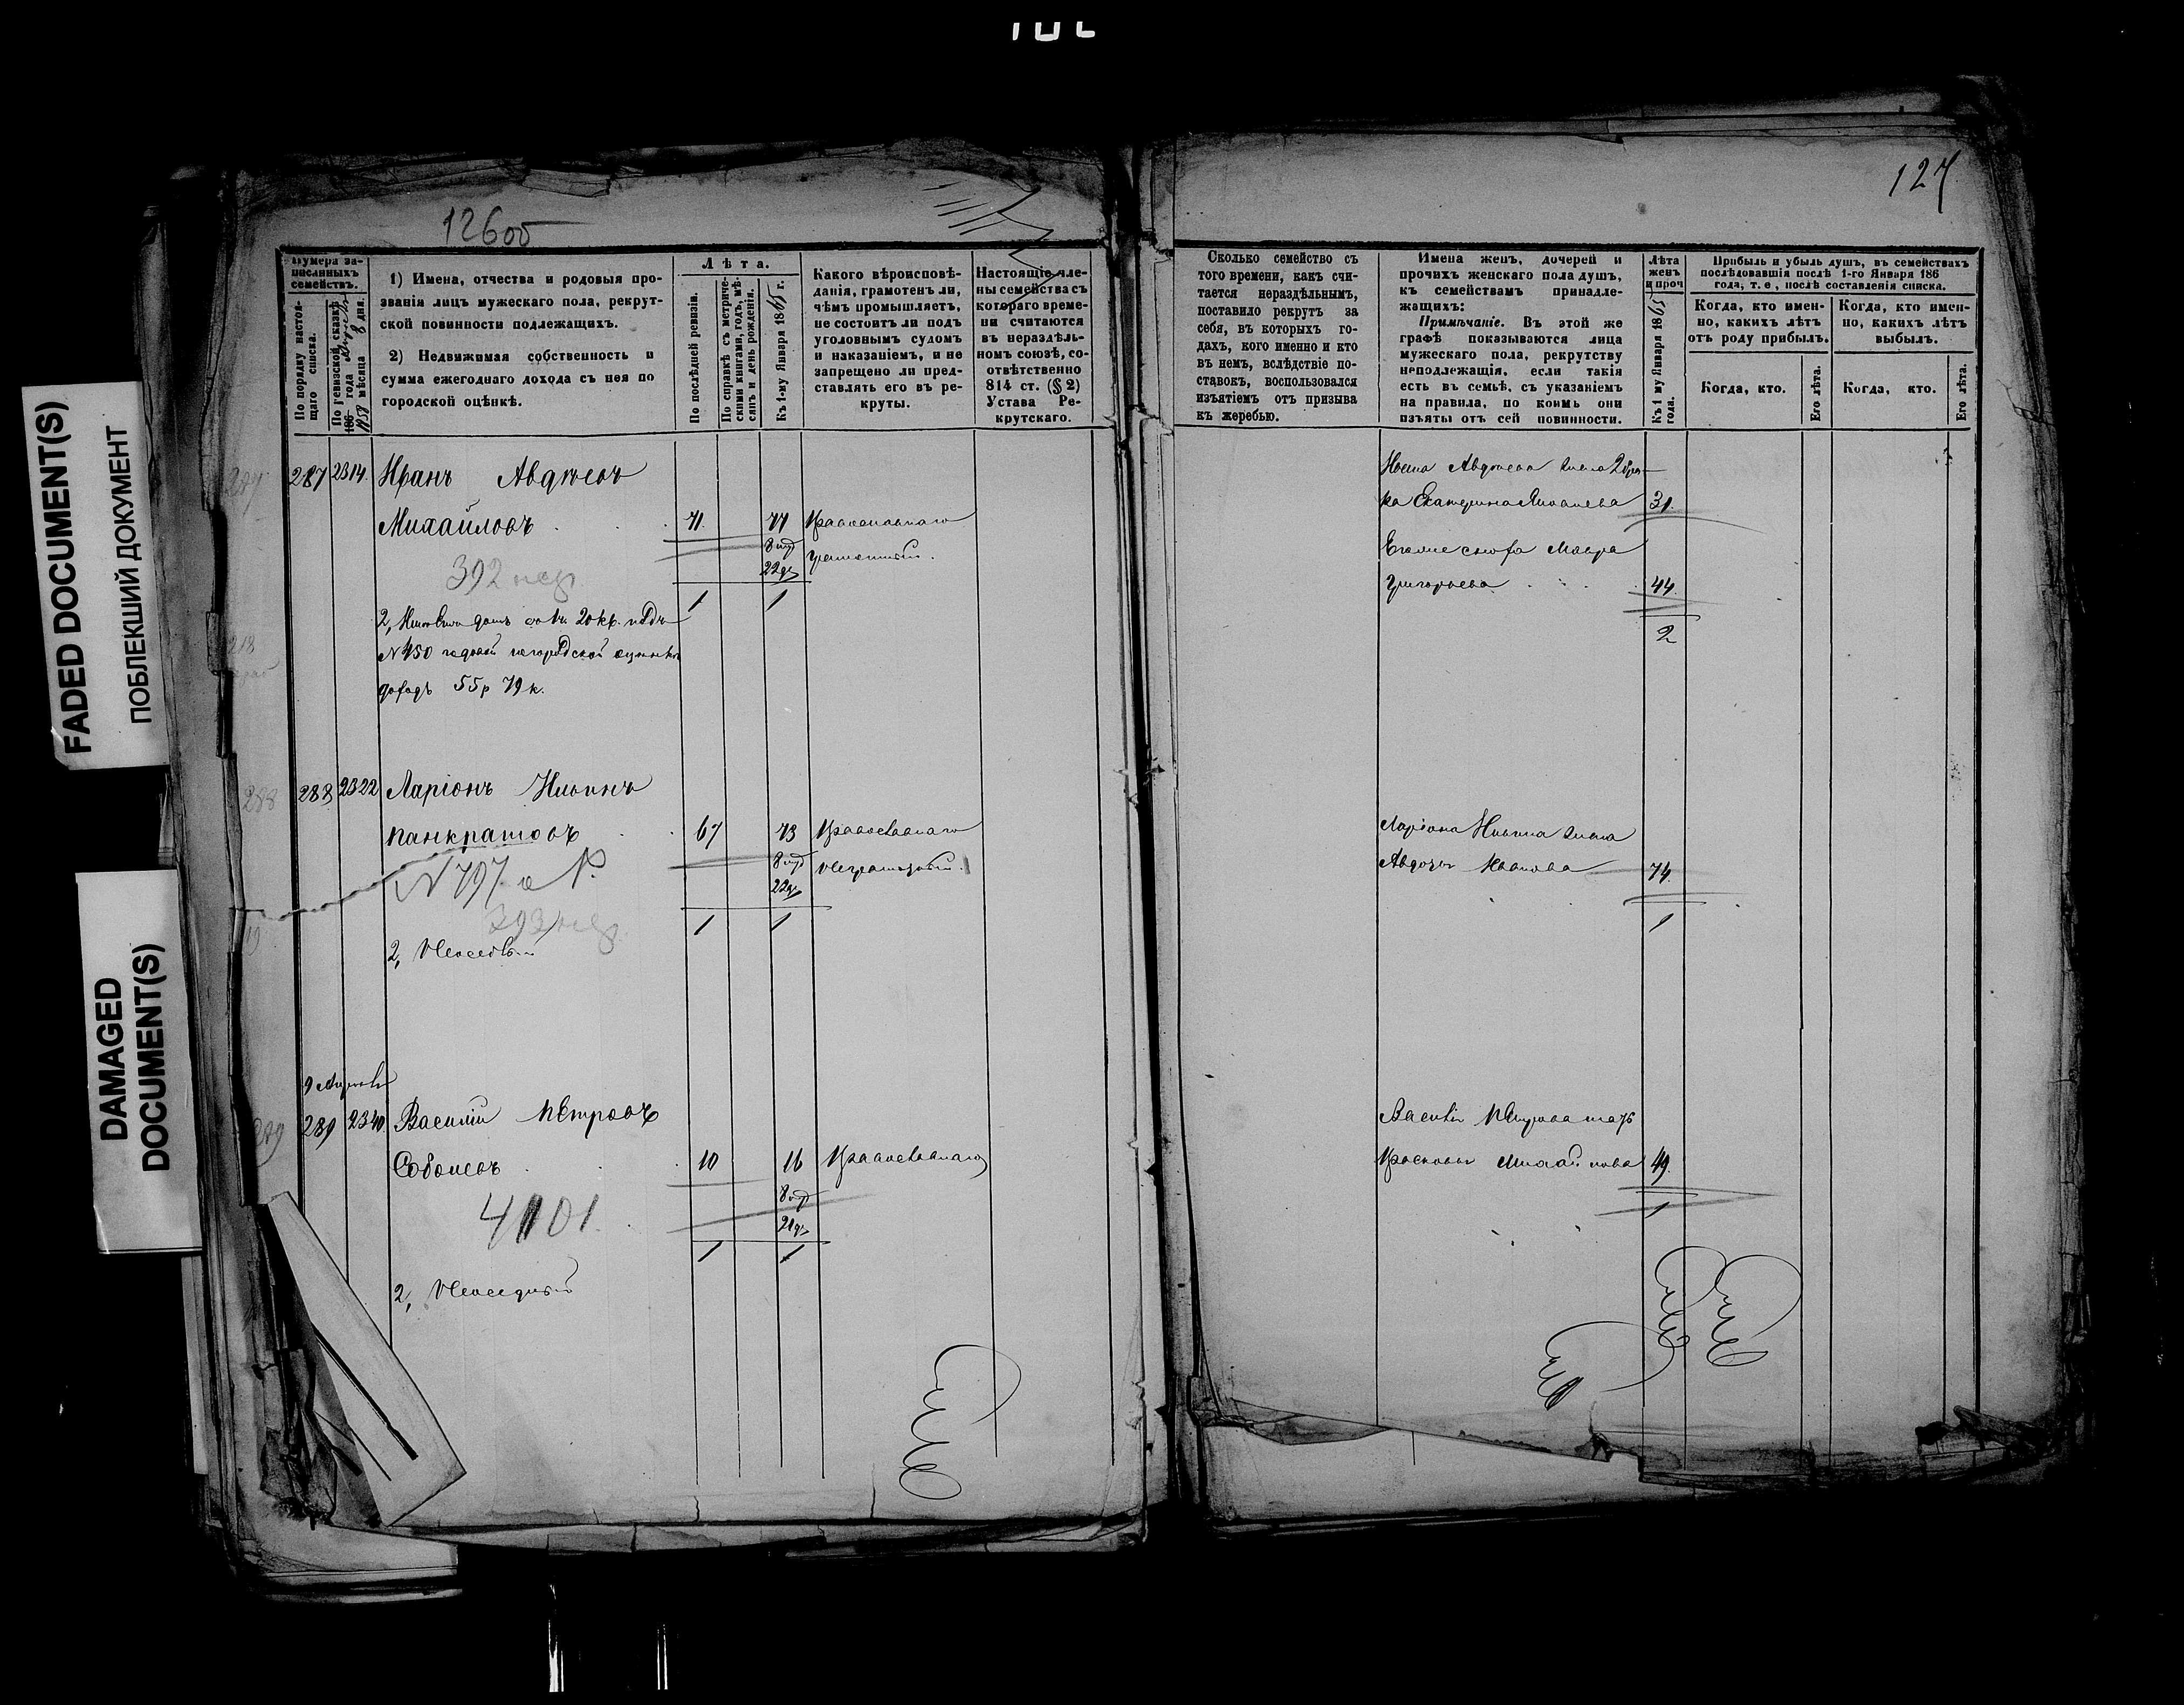 127
126об
FADED DOCUMENT(S)
ПОБЛЕКШИЙ ДОКУМЕНТ
DAMAGED
DOCUMENT(S)
Нумера за-
писанныхъ
семействъ.
По порядку настоя-
щаго списка.
По ревизской сказкѣ
186 года
1858 мѣсяца 8 дня.
1) Имена, отчества и родовыя про-
званія лицъ мужескаго пола, рекрут-
ской повинности подлежащихъ.
2) Недвижимая собственность и
сумма ежегоднаго дохода съ нея по
городской оцѣнкѣ.
Лѣта.
По послѣдней ревизіи.
По справкѣ съ метриче-
скими книгами, годъ, мѣ-
сяцъ и день рожденія.
Къ 1-му Января 1865 г.
Какого вѣроисповѣ-
данія, грамотенъ ли,
чѣмъ промышляетъ,
не состоитъ ли подъ
уголовнымъ судомъ
и наказаніемъ, и не
запрещено ли пред-
ставлять его въ ре-
круты.
Настоящіе чле-
ны семейства съ
котораго време-
ни считаются
въ нераздѣль-
номъ союзѣ, со-
отвѣтственно
814 ст. (§ 2)
Устава Ре-
крутскаго.
Сколько семейство съ
того времени, какъ счи-
тается нераздѣльнымъ,
поставило рекрутъ за
себя, въ которыхъ го-
дахъ, кого именно и кто
въ немъ, вслѣдствіе по-
ставокъ, воспользовался
изъятіемъ отъ призыва
къ жеребью.
Имена женъ, дочерей и
прочихъ женскаго пола душъ,
къ семействамъ принадле-
жащихъ:
Примѣчаніе. Въ этой же
графѣ показываются лица
мужескаго пола, рекрутству
неподлежащія, если такія
есть въ семьѣ, съ указаніемъ
на правила, по коимъ они
изъяты отъ сей повинности.
Лѣта
женъ
и проч
Къ 1 му Января 1865
года.
Прибыль и убыль душъ, въ семействахъ
послѣдовавшія послѣ 1-го Января 186
года, т. е, послѣ составленія списка.
Когда, кто имен-
но, какихъ лѣтъ
отъ роду прибылъ.
Когда, кто имен-
но, какихъ лѣтъ
выбылъ.
Когда, кто.
Его лѣта.
Когда, кто.
Его лѣта.
287 2314. Иванъ Авдѣевъ
Михайловъ 71. 77 Православнаго
грамотный.
22
1 1
392
№ 450
доходъ 55 р 79 к.
Ивана Авдѣева жена 2 бра-
ка Екатерина 31.
Мавра
Григорьева 44.
2
288 2322 Ларіонъ Ильинъ
Панкратовъ 67 73 Православнаго
неграмотный.
22
1 1
№ 797
393
2, Неоседлый
Ларіона Ильина жена
Авдотья Иванова 74.
1
289 2340 Василій Петровъ
Соболевъ 10 16 Православнаго
21
1 1
2, Неоседлый
Василія Петрова мать
Прасковья Михайлова 49.
1